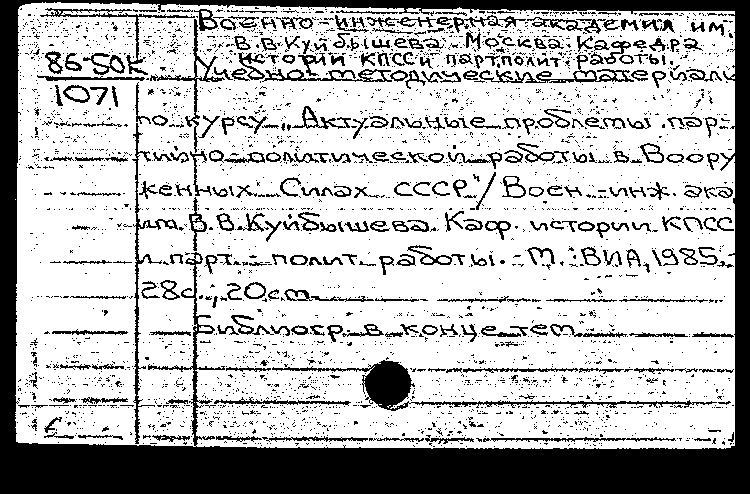 Военно-инженерная академия им.
В.В.Куйбышева. Москва. Кафедра
86-50к
истории КПСС и парт.полит. работы.
Учебно-методические материалы
1071
по курсу „Актуальные проблемы пар-
тийно-политической работы в Воору
женных Силах СССР"/ Воен.-инж. ака
им. В.В.Куйбышева. Каф. истории КПСС
и парт.-полит. работы. - М.: ВИА, 1985. -
28с.; 20см.
Библиогр. в конце тем